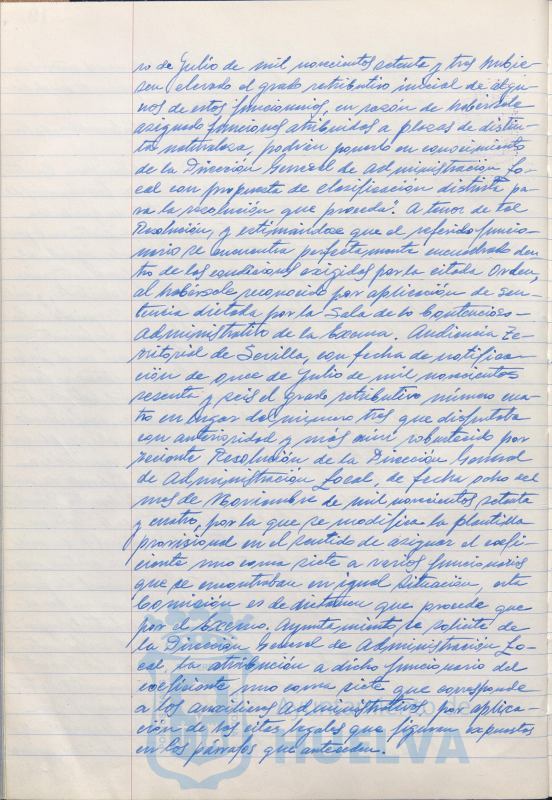 ro de Julio de mil novecientos setenta y tres hubie-
sen elevado el grado retributivo inicial de algu-
nos de estos funcionarios, en razón de habérsele
asignado funciones atribuidas a plazas de distin-
ta naturaleza, podrán ponerlo en conocimiento
de la Dirección General de Administración Lo-
cal con propuesta de clasificación distinta pa-
ra la resolución que proceda". A tenor de tal
Resolución, y estimándose que el referido funcio-
nario se encuentra perfectamente encuadrado den-
tro de las condiciones exigidas por la citada Orden,
al habérsele reconocido por aplicación de sen-
tencia dictada por la Sala de lo Contencioso-
Administrativo de la Excma. Audiencia Te-
rritorial de Sevilla, con fecha de notifica-
ción de once de Julio de mil novecientos
sesenta y seis el grado retributivo número cua-
tro en lugar del número tres que disfrutaba
con anterioridad y más aún robustecido por
reciente Resolución de la Dirección General
de Administración Local, de fecha ocho del
mes de Noviembre de mil novecientos setenta
y cuatro, por la que se modifica la plantilla
provisional en el sentido de asignar el coefi-
ciente uno coma siete a varios funcionarios
que se encontraban en igual situación, esta
Comisión es de dictamen que procede que
por el Excmo. Ayuntamiento, se solicite de
la Dirección General de Administración Lo-
cal la atribución a dicho funcionario del
coeficiente uno coma siete que corresponde
a los auxiliares administrativos, por aplica-
ción de las citas legales que figuran expuestas
en los párrafos que anteceden.
HUELVA